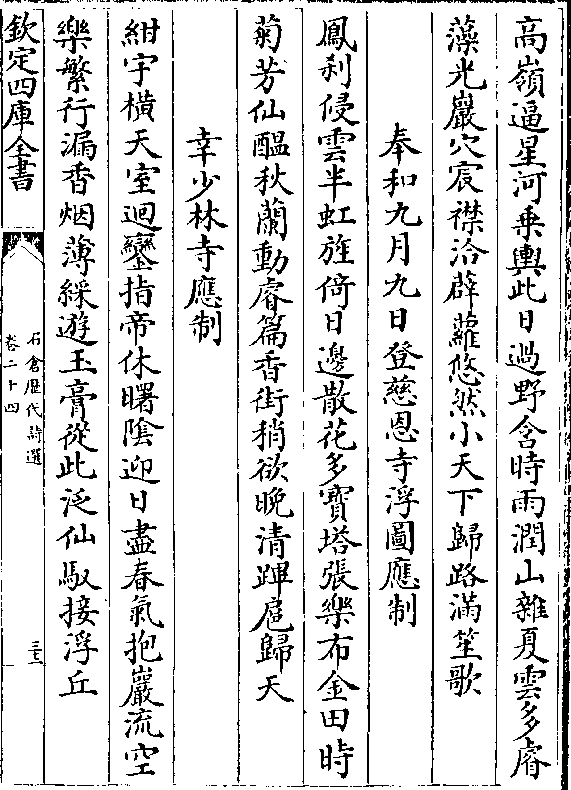 高嶺逼星河乗輿此日過野含時雨潤山雜夏雲多睿
藻光巖穴宸襟洽薜蘿悠然小天下歸路滿笙歌
奉和九月九日登慈恩寺浮圖應制
鳳刹侵雲半虹旌倚日邊散花多寳塔張樂布金田時
菊芳仙醖秋蘭動睿篇香街稍欲晚清蹕扈歸天
幸少林寺應制
紺宇横天室迴鑾指帝休曙陰迎日盡春氣抱巖流空
樂繁行漏香烟薄綵遊玉膏從此泛仙馭接浮丘
欽定四庫全書
石倉歴代詩選
卷二十四
三十三